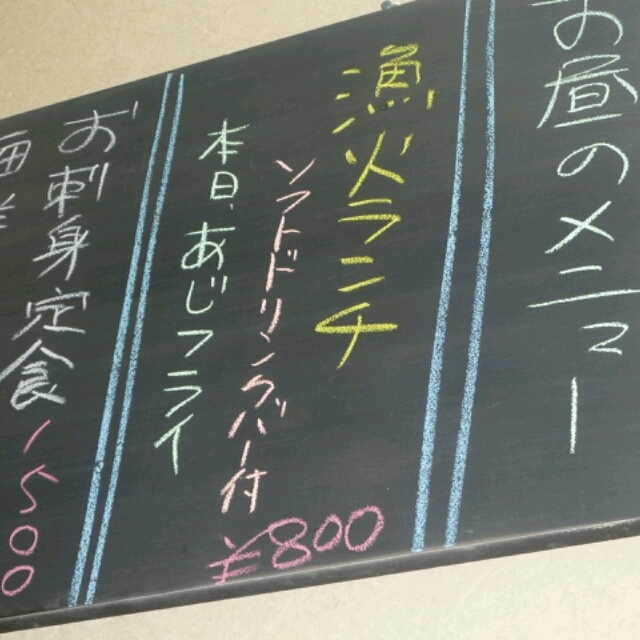 お昼のメニュー
漁火ランチ
ソフトドリンクバー付
本日、あじフライ
¥800
お刺身定食
1500